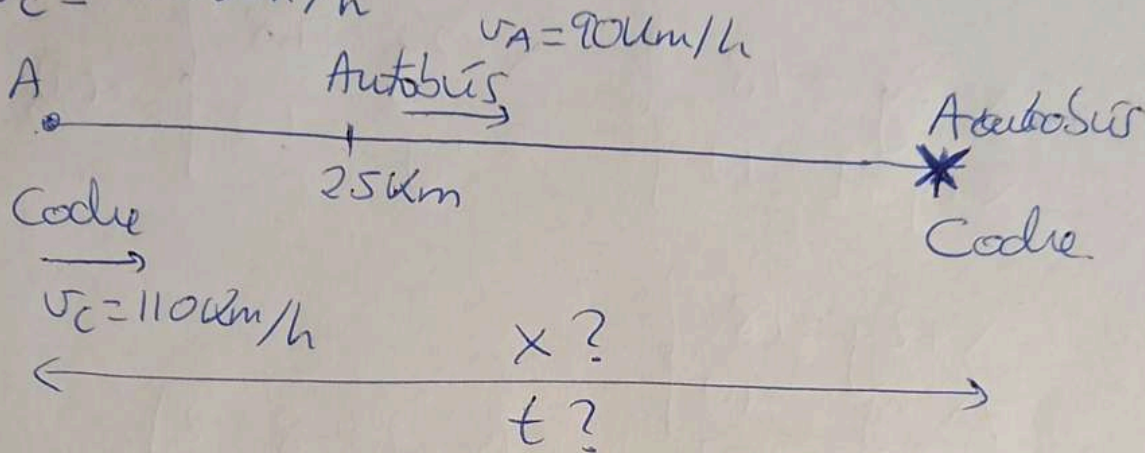 vA=90Km/h
A
Autobús
Autobús
25Km
Coche
Coche
vC=110Km/h
x?
t?